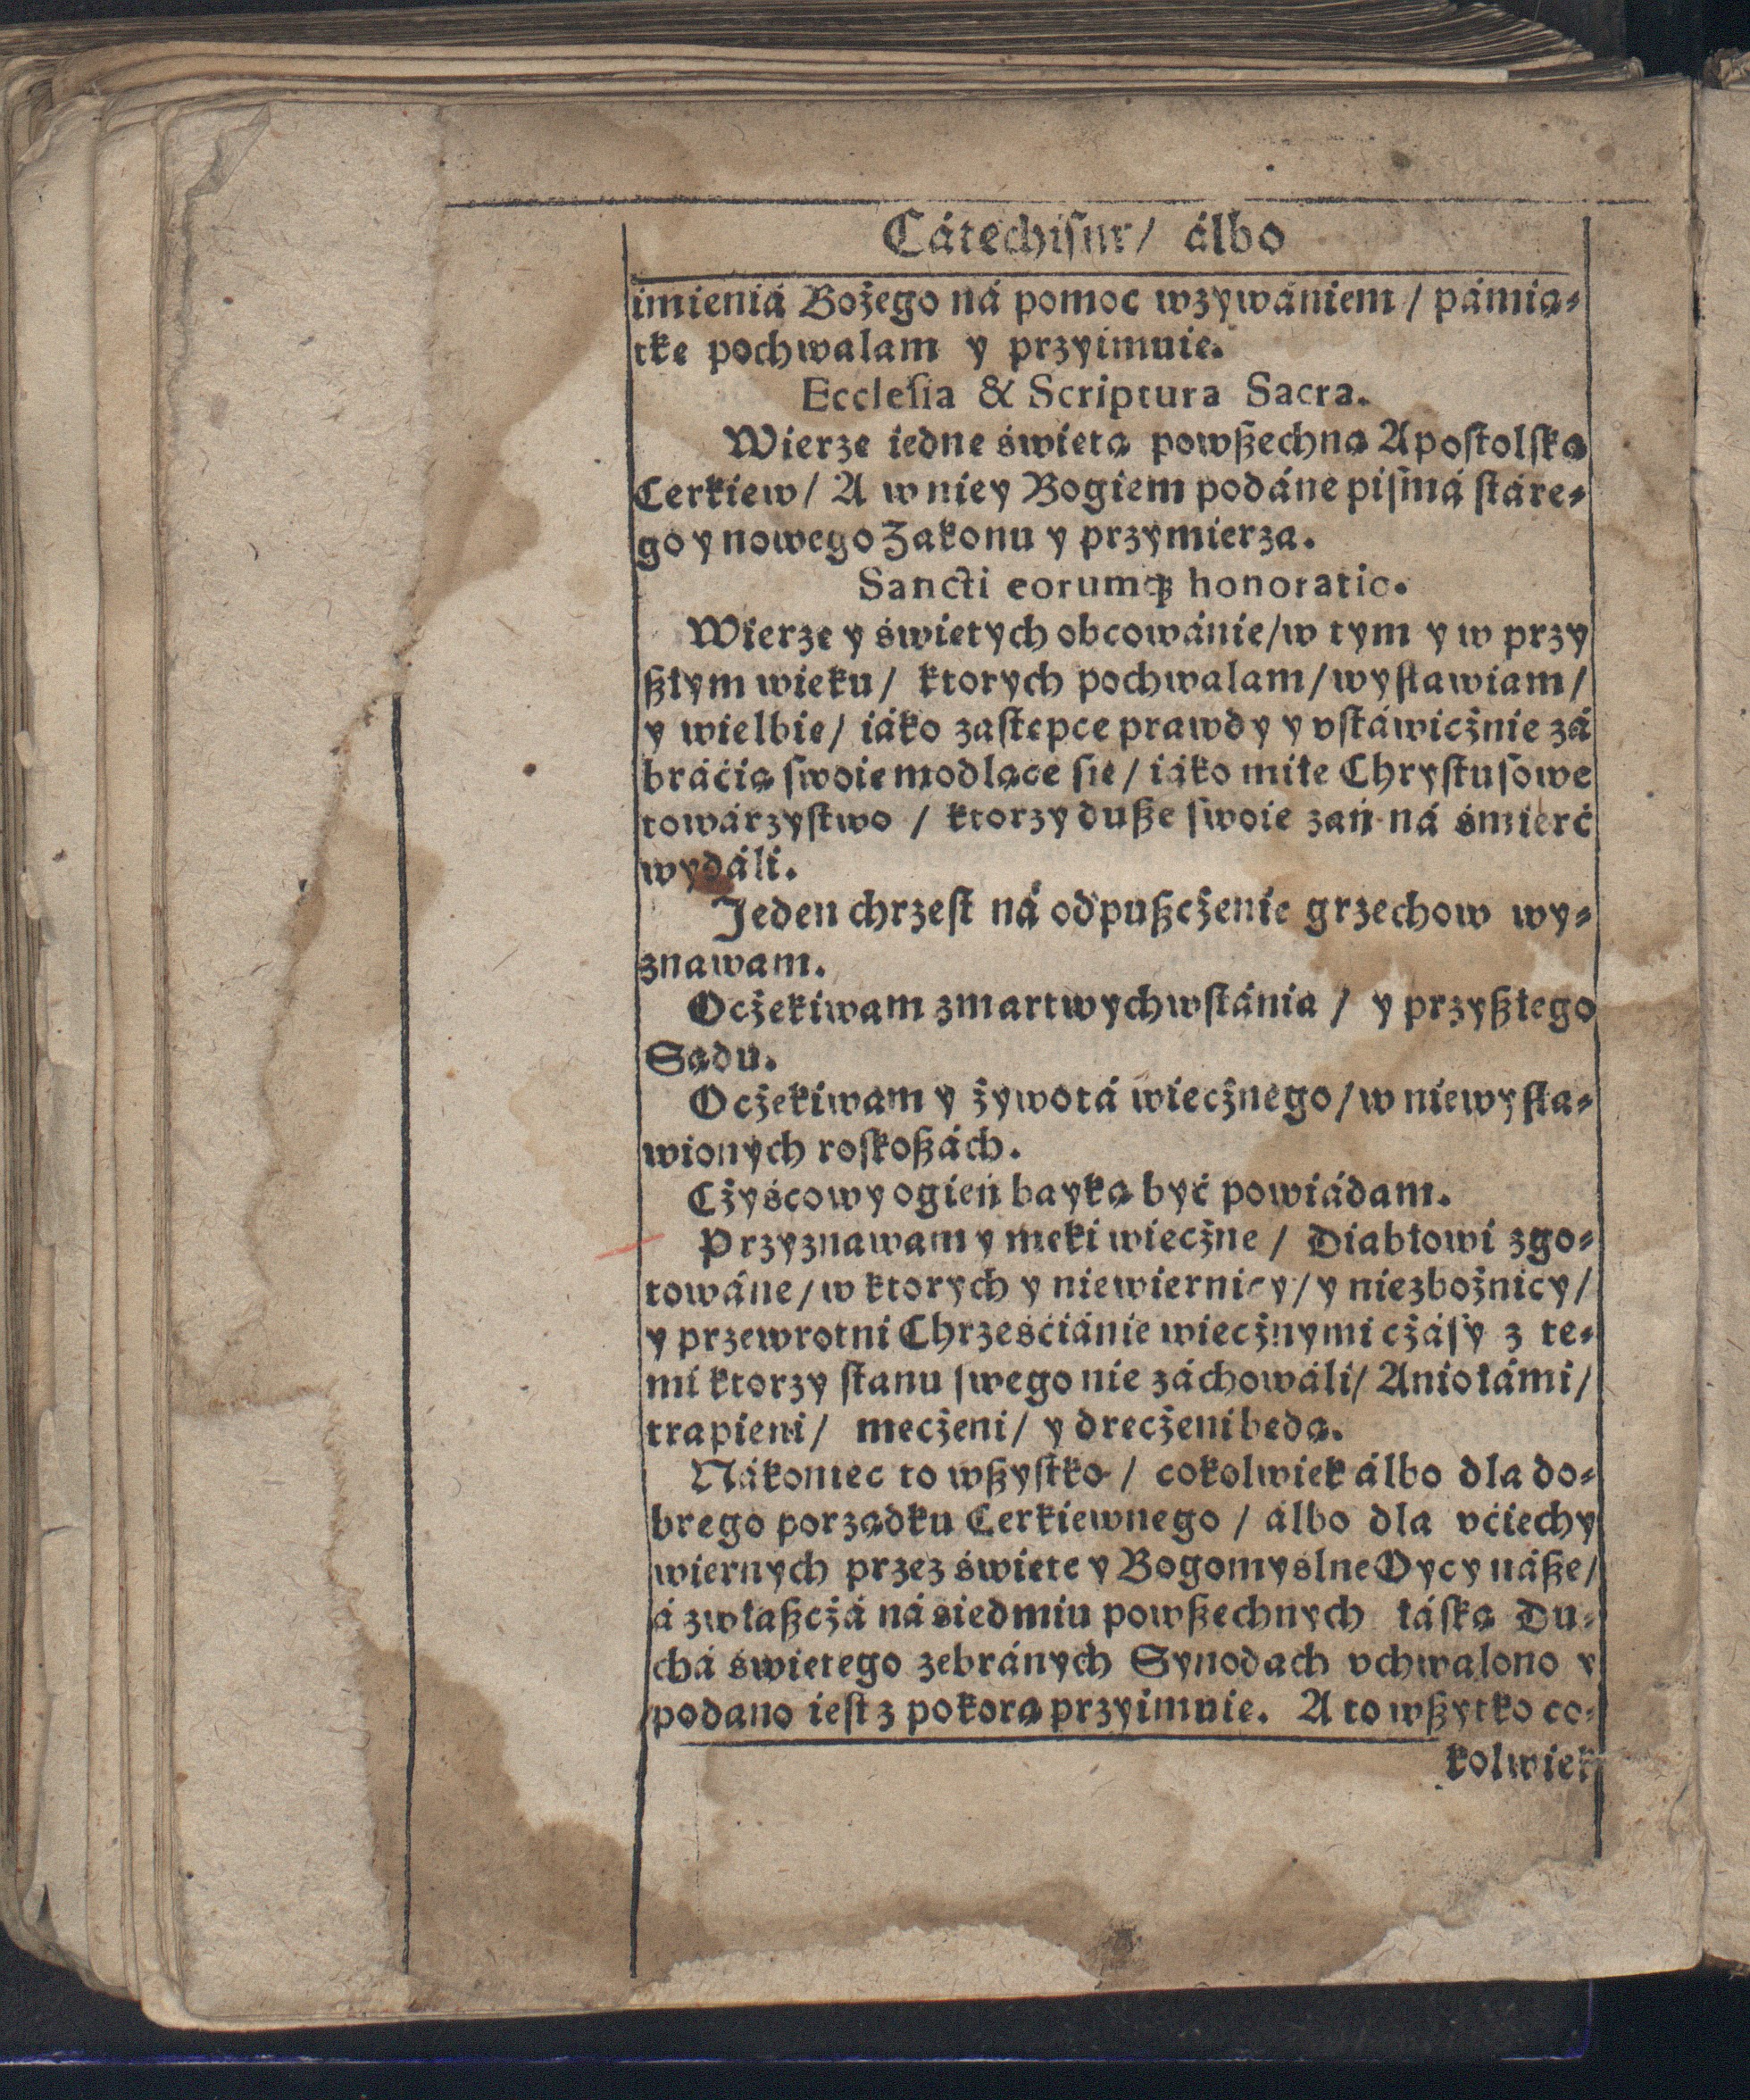 Cátechism/ álbo
imieniá Bożego ná pomoc wzywániem/ pámią-
tkę pochwalam y przyimuię.
Ecclesia & Scriptura Sacra.
Wierzę iednę świętą powßechną Apostolską
Cerkiew/ A w niey Bogiem podáne pismá stáre-
go y nowego Zakonu y przymierza.
Sancti eorumq́; honoratio.
Wierzę y świętych obcowánie/ w tym y w przy
ßłym wieku/ ktorych pochwalam/ wysławiam/
y wielbię/ iáko zastępce prawdy y vstáwicżnie zá
bráćią swoię modlące się/ iáko miłe Chrystusowe
towárzystwo/ ktorzy duße swoie zań ná śmierć
wydáli.
Jeden chrzest ná odpußcżenie grzechow wy-
znawam.
Ocżekiwam zmartwychwstánia/ y przyßłego
Sądu.
Ocżekiwam y żywotá wiecżnego/ w niewysła-
wionych roskoßách.
Cżyścowy ogień bayką być powiádam.
Przyznawam y męki wiecżne/ Diabłowi zgo-
towáne/ w ktorych y niewiernicy/ y niezbożnicy/
y przewrotni Chrześćiánie wiecżnymi cżásy z te-
mi ktorzy stanu swego nie záchowáli/ Aniołámi/
trapieni/ męcżeni/ y dręcżeni będą.
Nákoniec to wßystko/ cokolwiek álbo dla do-
brego porządku Cerkiewnego/ álbo dla vćiechy
wiernych przez święte y Bogomyślne Oycy náße/
á zwłaßcżá ná siedmiu powßechnych łáską Du-
chá świętego zebránych Synodach vchwalono y
podano iest z pokorą przyimuię. A to wßytko co-
kolwiek